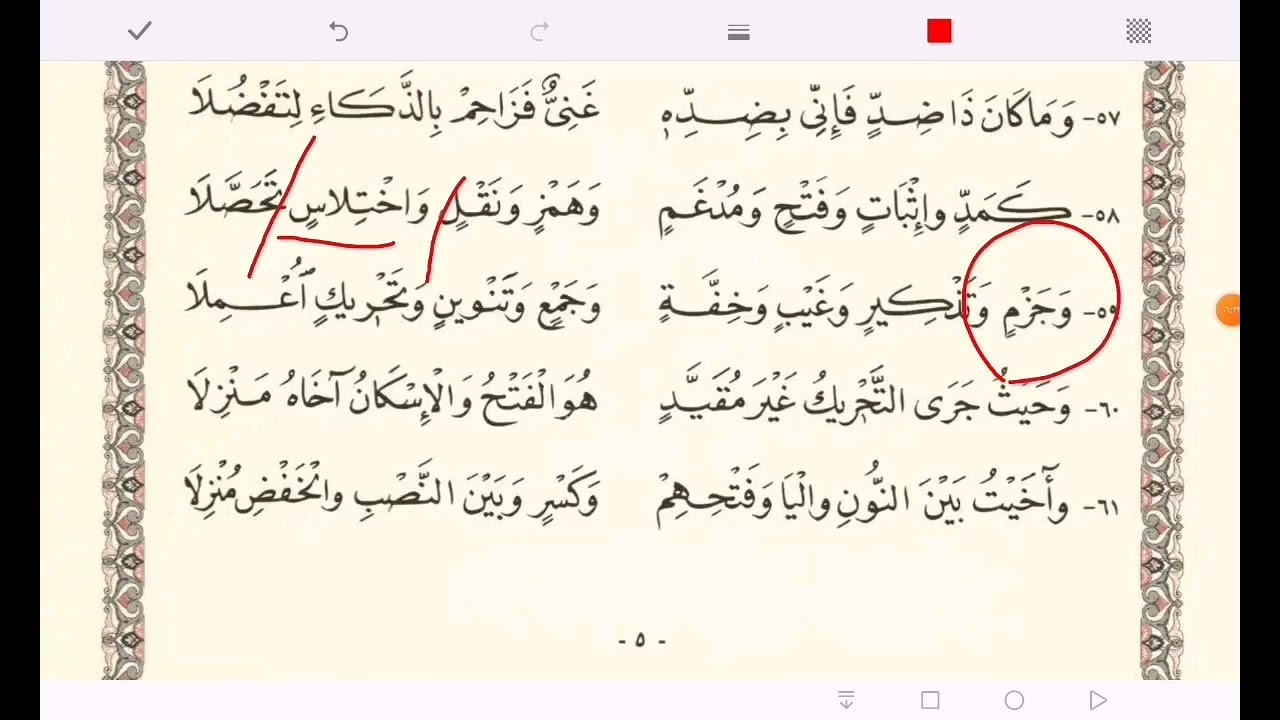 ٥٧- وَمَا كَانَ ذَا ضِدٍّ فَإِنِّي بِضِدِّهِ غَنِيٌّ فَزَاحِمْ بِالذَّكَاءِ لِتَفْضُلَا
٥٨- كَمَدٍّ وَإِثْبَاتٍ وَفَتْحٍ وَمُدْغَمٍ وَهَمْزٍ وَنَقْلٍ وَاخْتِلاسٍ تَحَصَّلَا
٥٩- وَجَزْمٍ وَتَذْكِيرٍ وَغَيْبٍ وَخِفَّةٍ وَجَمْعٍ وَتَنْوِينٍ وَتَحْرِيكٍ اُعْمِلَا
٦٠- وَحَيْثُ جَرَى التَّحْرِيكُ غَيْرَ مُقَيَّدٍ هُوَ الْفَتْحُ وَالْإِسْكَانُ آخَاهُ مَنْزِلَا
٦١- وَأَخَيْتُ بَيْنَ النُّونِ وَالْيَا وَفَتْحِهِمْ وَكَسْرٍ وَبَيْنَ النَّصْبِ وَالْخَفْضِ مُنْزِلَا
- ٥ -